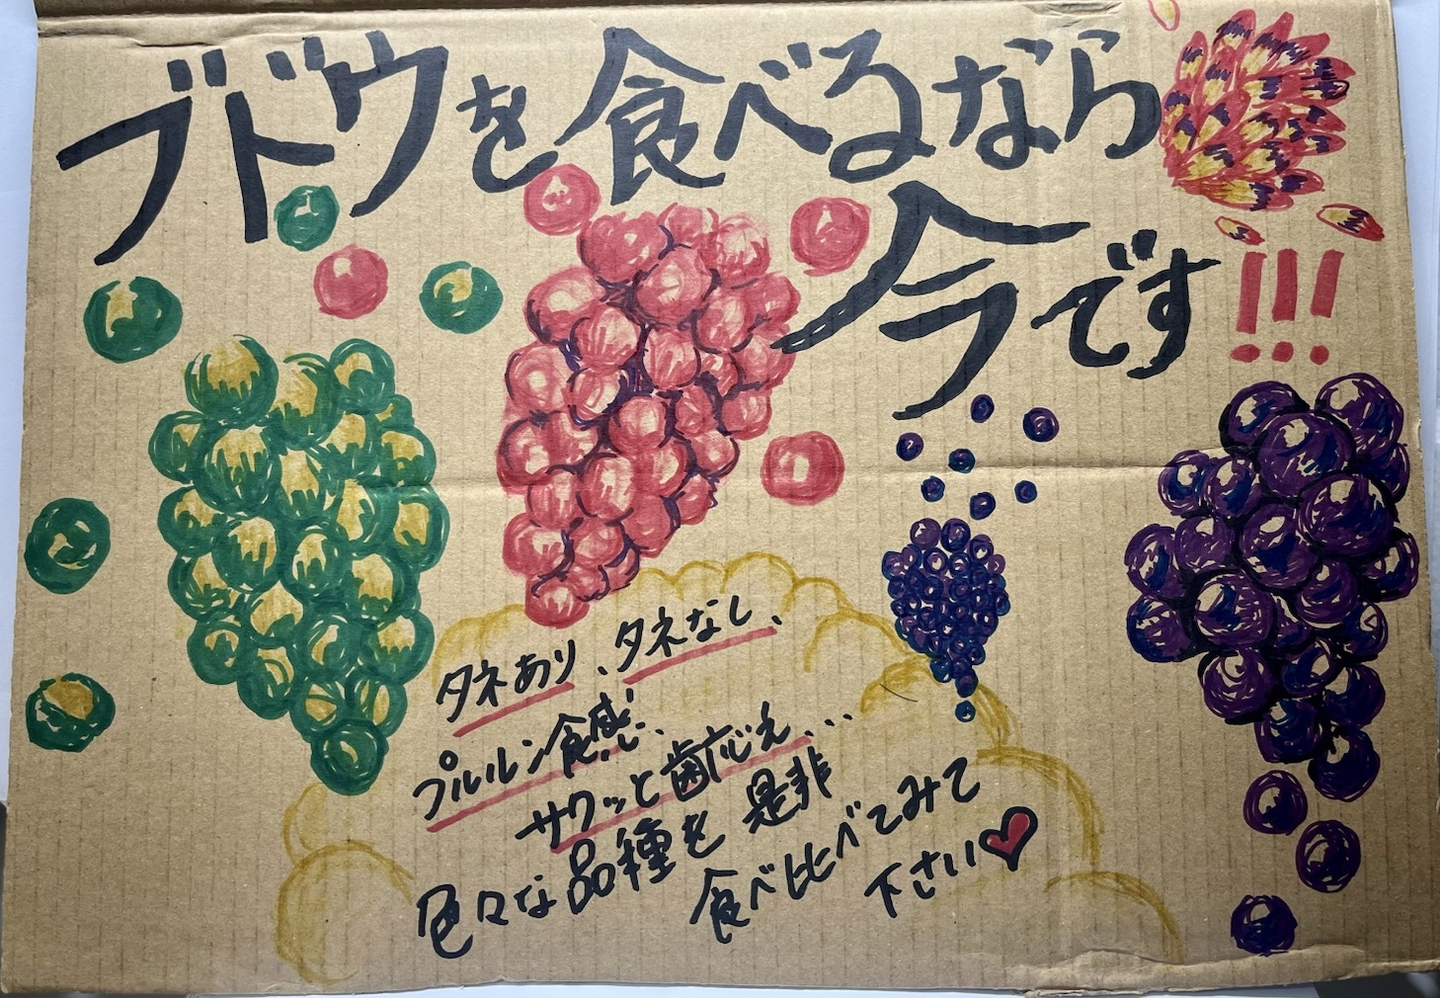 ブドウを食べるなら
今です!!!
タネあり、タネなし、
プルルン食感、
サクッと歯応え...
色々な品種を是非
食べ比べてみて
下さい♥